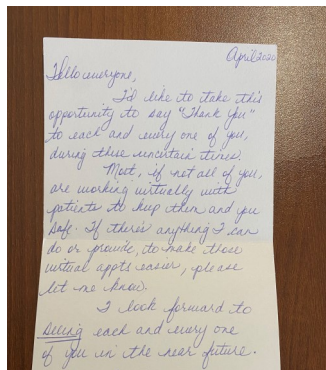 April 2020
Hello everyone,
I'd like to take this
opportunity to say "Thank You"
to each and every one of you,
during these uncertain times.
Most, if not all of you,
are working virtually with
patients to keep them and you
safe. If there's anything I can
do or provide, to make those
virtual appts easier, please
let me know.
I look forward to
seeing each and every one
of you in the near future.